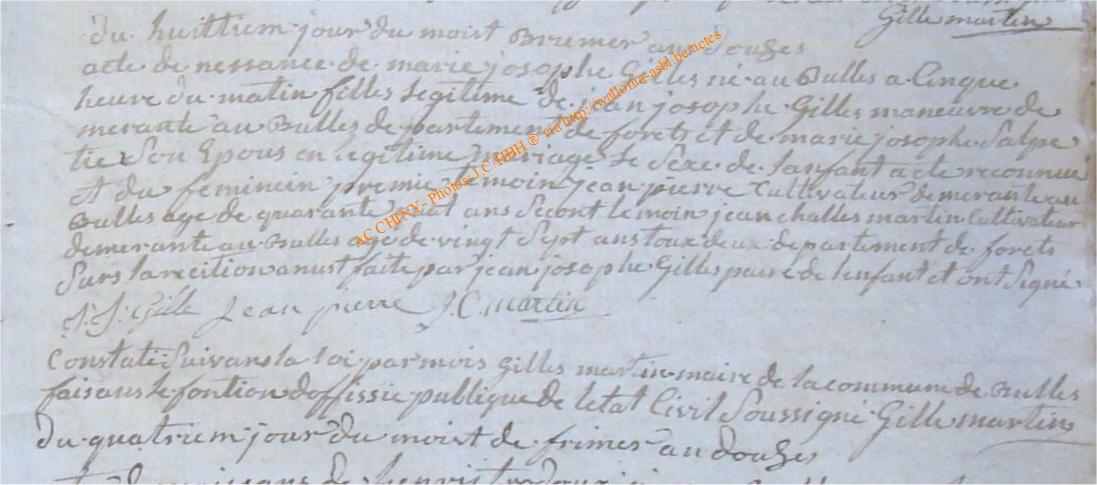 Gille martin
du huittiem jour du moist Bremer an douzes
acte de nessance de marie josophe Gilles né au Bulles a Cinque
heure du matin filles legitime de jean josophe Gilles maneuvre de
merante au Bulles departement de forets et de marie josophe Salpe
tier Son Epous en legitime mariage le Sexe de lanfant a ete reconnue
et du feminein premie temoin jean pierre Cultivateur demerante au
Bulles age de quarante huat ans Secont temoin jean challes martin Cultivateur
demerante au Bulles age de vingt Sept ans toux deux departement de forets
Surs la recition a nust faite par jean josophe Gilles paire de lenfant et ont Signé
J. J. Gille Jean pierre J. C. martin
Constaté Suivans la loi par mois Gilles martin maire de la commune de Bulles
faisans le fontion doffissié publique de letat Civil Soussigné Gille martin
du quatriem jour du moist de frimer an douzes
AC CHINY - Photos J.C HBH ® via http://wallonia-asbl.be/actes